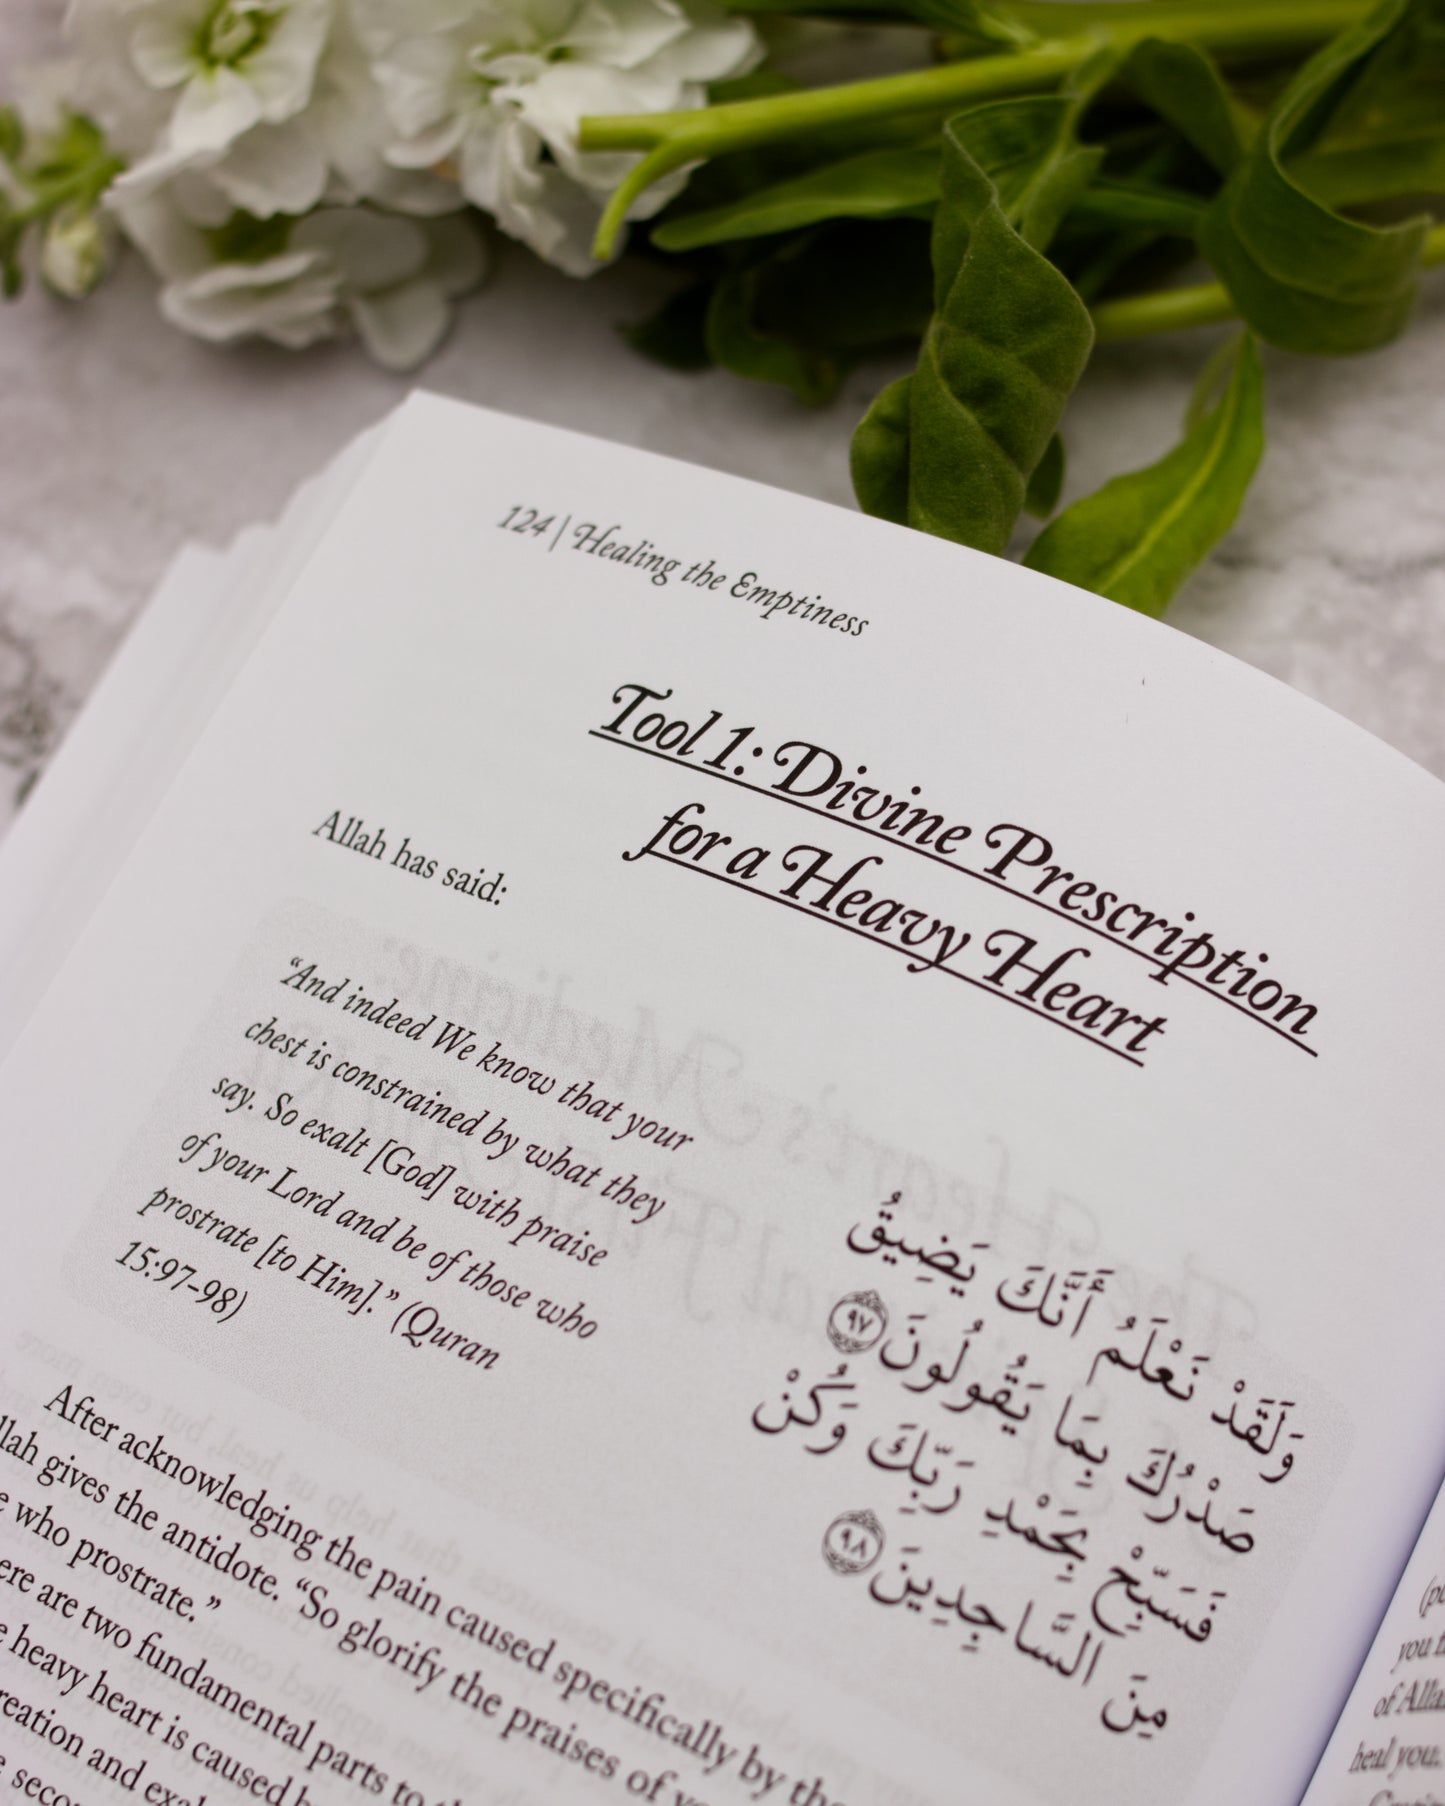 124 | Healing the Emptiness
Tool 1: Divine Prescription
for a Heavy Heart
Allah has said:
“And indeed We know that your
chest is constrained by what they
say. So exalt [God] with praise
of your Lord and be of those who
prostrate [to Him].” (Quran
15:97–98)
وَلَقَدْ نَعْلَمُ أَنَّكَ يَضِيقُ
صَدْرُكَ بِمَا يَقُولُونَ ٩٧
فَسَبِّحْ بِحَمْدِ رَبِّكَ وَكُنْ
مِنَ السَّاجِدِينَ ٩٨
After acknowledging the pain caused specifically by
gives the antidote. “So glorify the praises of
who prostrate.”
are two fundamental parts to
heavy heart is caused
and
you
of
heal you.